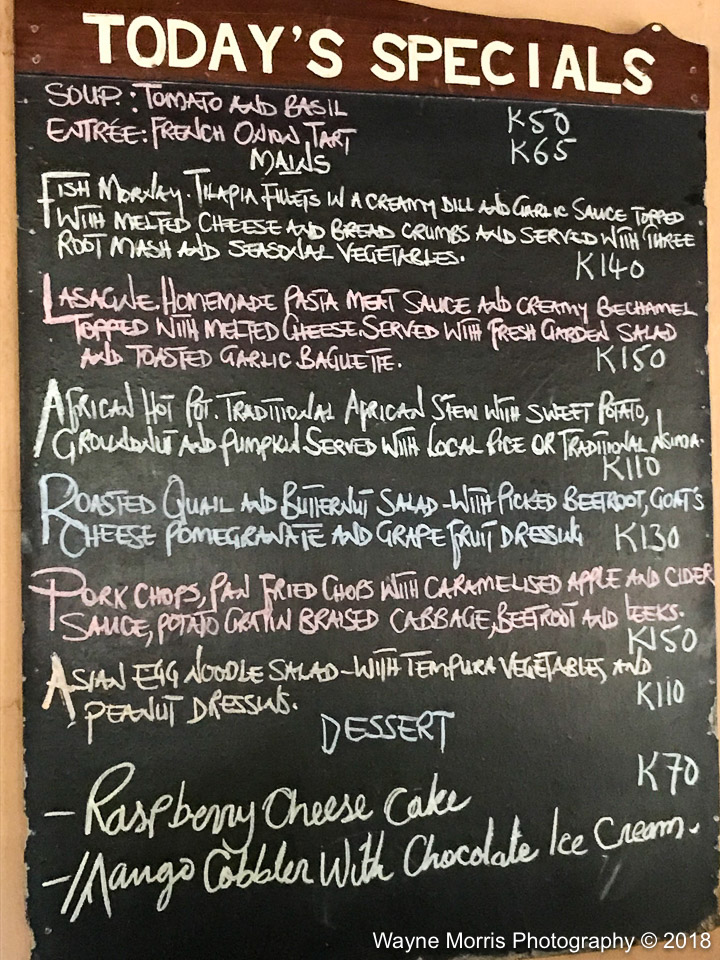 TODAY'S SPECIALS
SOUP.: TOMATO AND BASIL K50
ENTRÉE: FRENCH ONION TART K65
MAINS
FISH MORNAY. TILAPIA FILLETS IN A CREAMY DILL AND GARLIC SAUCE TOPPED
WITH MELTED CHEESE AND BREAD CRUMBS AND SERVED WITH THREE
ROOT MASH AND SEASONAL VEGETABLES.
K140
LASAGNE. HOMEMADE PASTA MEAT SAUCE AND CREAMY BECHAMEL
TOPPED WITH MELTED CHEESE. SERVED WITH FRESH GARDEN SALAD
AND TOASTED GARLIC BAGUETTE. K150
AFRICAN HOT POT. TRADITIONAL AFRICAN STEW WITH SWEET POTATO,
GROUNDNUT AND PUMPKIN SERVED WITH LOCAL RICE OR TRADITIONAL NSIMA.
K110
ROASTED QUAIL AND BUTTERNUT SALAD - WITH PICKED BEETROOT, GOAT'S
CHEESE POMEGRANATE AND GRAPE FRUIT DRESSING K130
PORK CHOPS, PAN FRIED CHOPS WITH CARAMELISED APPLE AND CIDER
SAUCE, POTATO GRATIN BRAISED CABBAGE, BEETROOT AND LEEKS.
K150
ASIAN EGG NOODLE SALAD - WITH TEMPURA VEGETABLES AND
PEANUT DRESSING. K110
DESSERT
K70
- Raspberry Cheese Cake
- Mango Cobbler With Chocolate Ice Cream.
Wayne Morris Photography © 2018